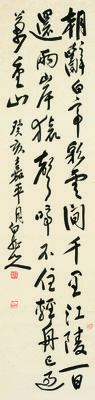 朝辭白帝彩雲間千里江陵一日
還兩岸猿聲啼不住輕舟已過
萬重山 癸亥嘉平月